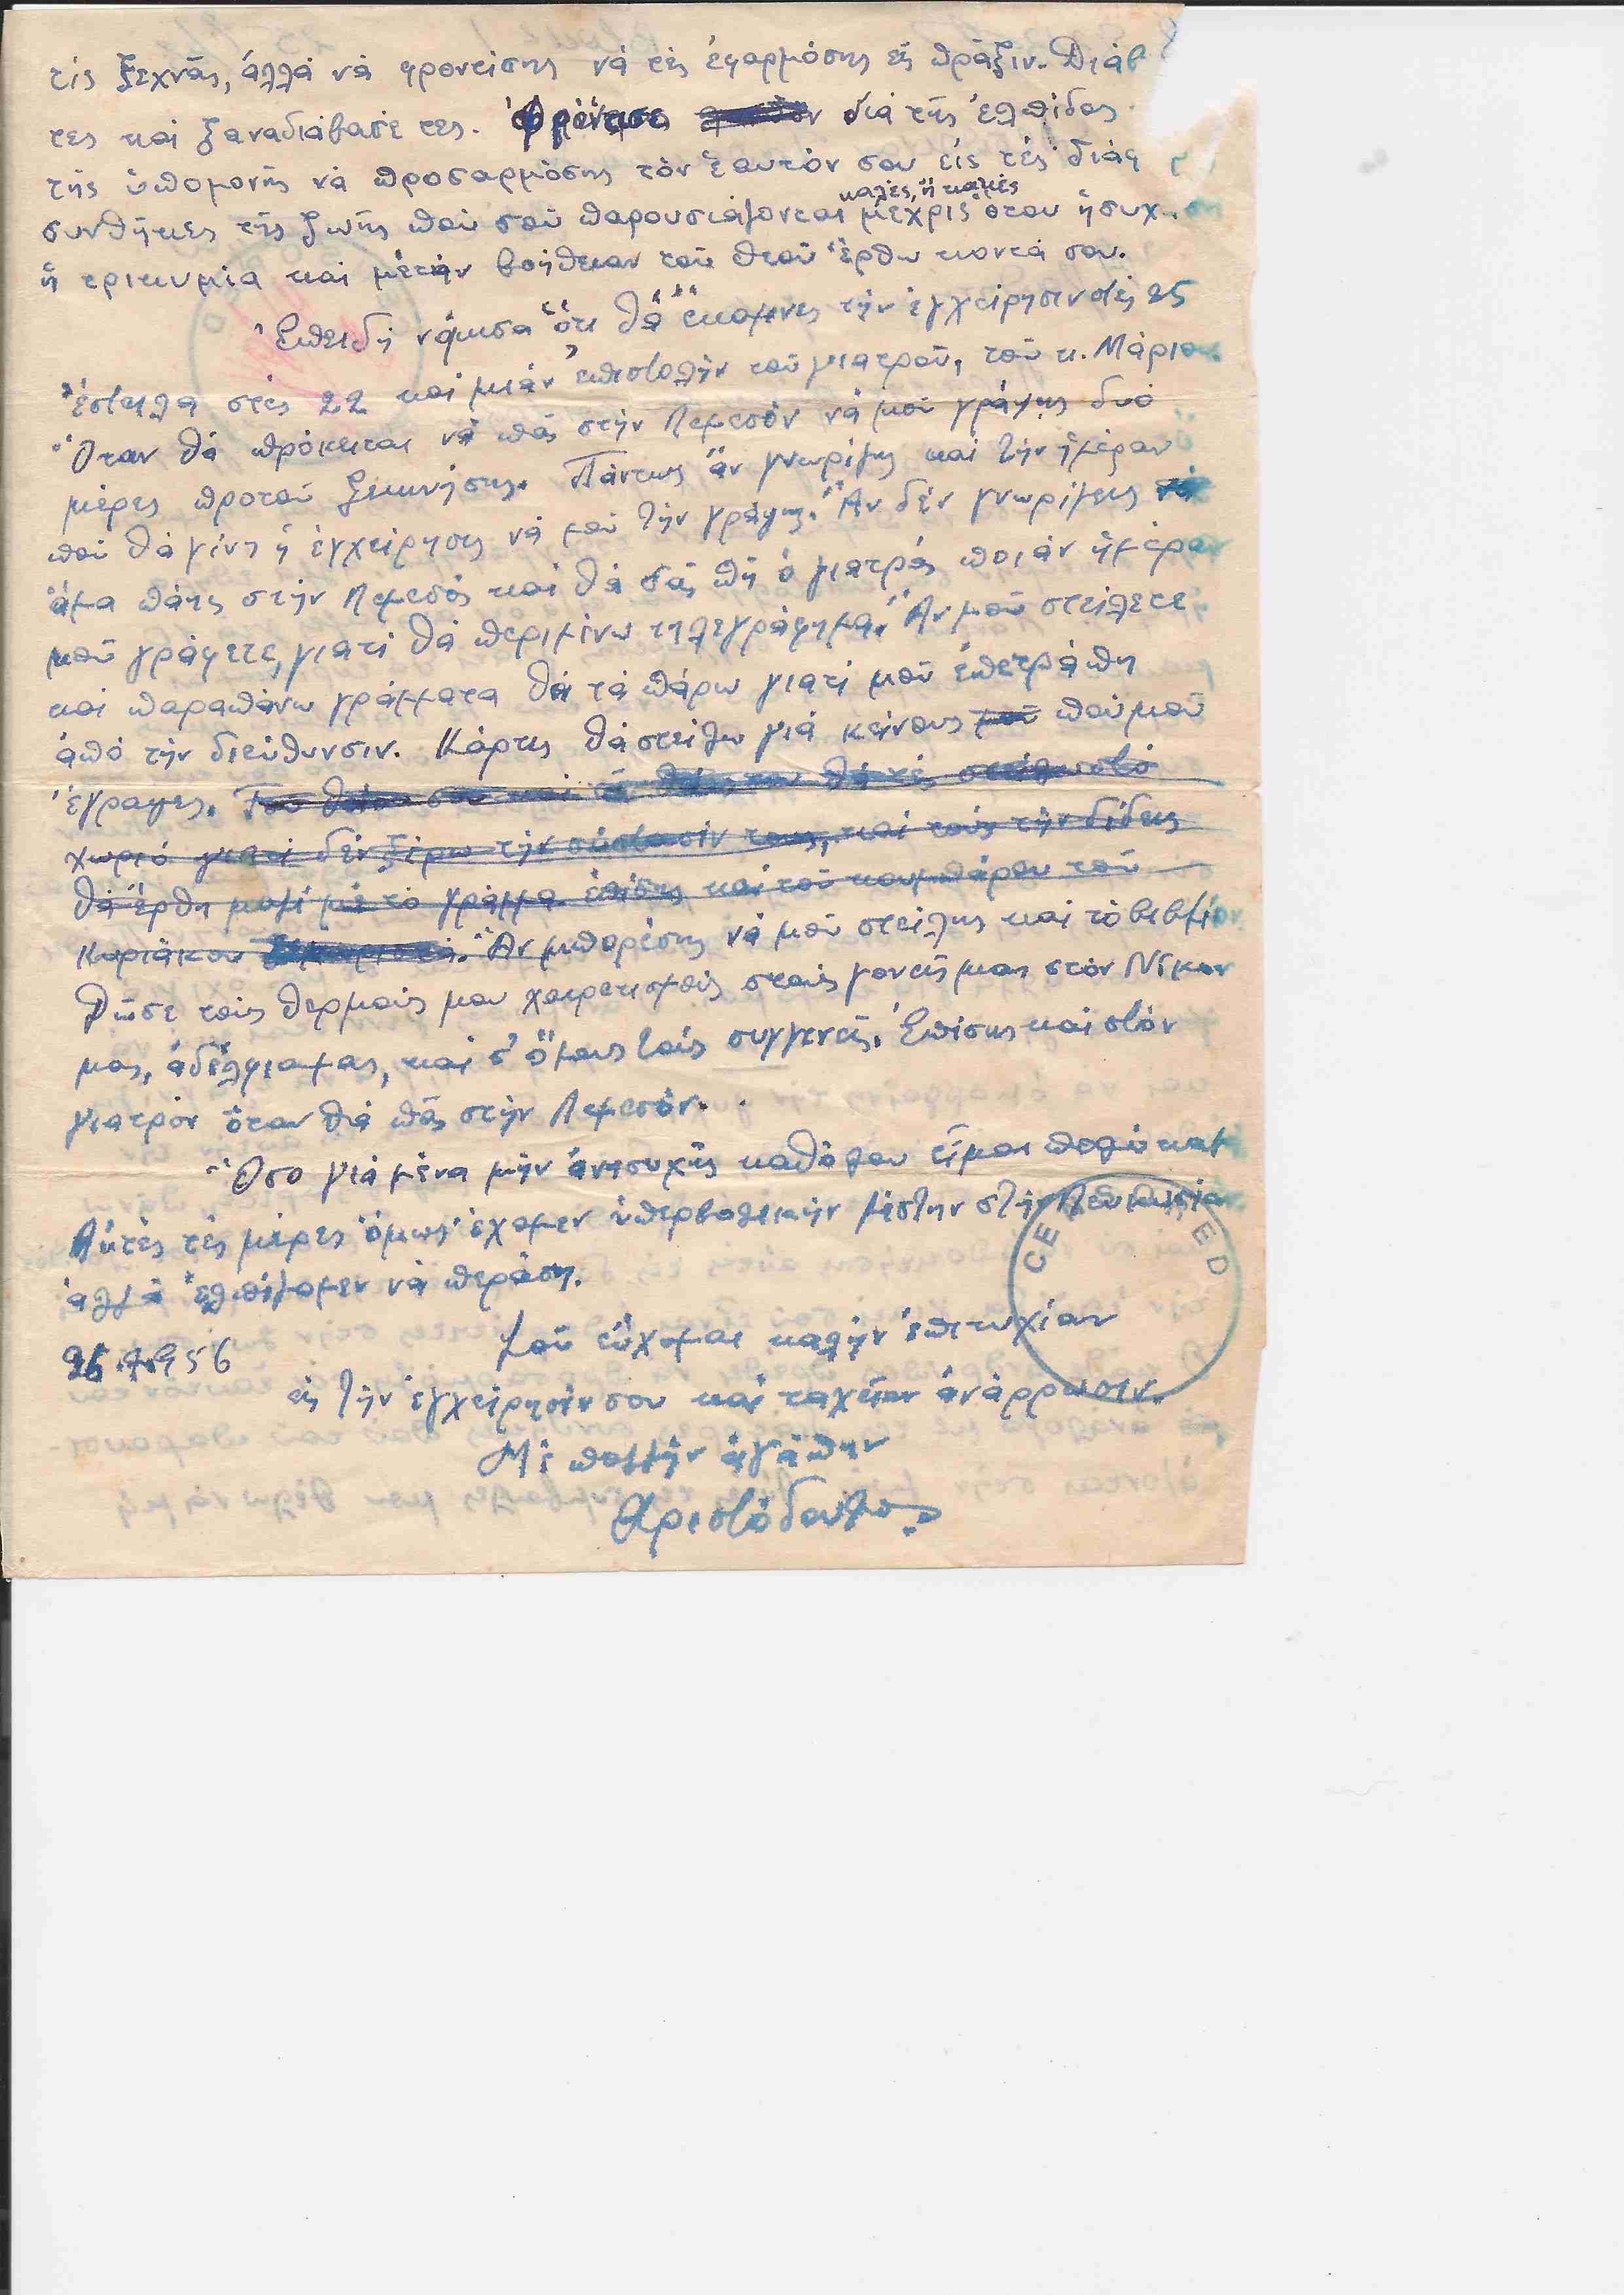 τίς ξεχνᾶς, ἀλλά νά φροντίσης νά τές ἐφαρμόσης εἰς πρᾶξιν. Διάβ
τες καί ξαναδιάβασέ τες. Φρόντισε διά τῆς ἐλπίδος
τῆς ὑπομονῆς νά προσαρμόσης τόν ἑαυτόν σου εἰς τές διάφ
καλές, ἤ κακές
συνθῆκες τῆς ζωῆς πού σοῦ παρουσιάζονται μέχρις ὅτου ἡσυχ
ἡ τρικυμία καί μέ τήν βοήθειαν τοῦ Θεοῦ ἔρθω κοντά σου.
Ἐπειδή νόμισα ὅτι θά ἔκαμνες τήν ἐγχείρησιν στές 25
ἔστειλα στές 22 καί μιάν ἐπιστολήν τοῦ γιατροῦ, τοῦ κ. Μάριου.
Ὅταν θά πρόκειται νά πᾶς στήν Λεμεσόν νά μοῦ γράψης δυό
μέρες προτοῦ ξεκινήσης. Πάντως ἄν γνωρίζης καί τήν ἡμέραν
πού θά γίνη ἡ ἐγχείρησις νά μοῦ τήν γράψης. Ἄν δέν γνωρίζεις
ἅμα πάης στήν Λεμεσός καί θά σᾶς πῆ ὁ γιατρός ποιάν ἡμέραν
μοῦ γράφετε, γιατί θά περιμένω τηλεγράφημα. Ἄν μοῦ στείλετε
καί παραπάνω γράμματα θά τά πάρω γιατί μοῦ ἐπετράπη
ἀπό τήν διεύθυνσιν. Κάρτες θά στείλω γιά κείνους πού μοῦ
ἔγραψες. Τοῦ θείου σου καί θά τές στείλω στό
χωριό γιατί δέν ξέρω τήν σύστασίν τους, καί τούς τήν δίδεις
θά ἔρθη μαζί μέ τό γράμμα ἐπίσης καί τοῦ κουμπάρου τοῦ
Κυριάκου. Ἄν μπορέσης νά μοῦ στείλης καί τό βιβλίον
Δῶσε τούς θερμούς μου χαιρετισμούς στούς γονεῖς μας στόν Νίκον
μας, ἀδέλφια μας, καί σ' ὅλους τούς συγγενεῖς. Ἐπίσης καί στόν
γιατρόν ὅταν θά πᾶς στήν Λεμεσόν.
Ὅσο γιά μένα μήν ἀνησυχῆς καθόλου εἶμαι πολύ καλά
Αὐτές τές μέρες ὅμως ἔχομεν ὑπερβολικήν ζέστην στήν Λευκωσίαν
ἀλλά ἐλπίζομεν νά περάση.
Σοῦ εὔχομαι καλήν ἐπιτυχίαν
26.7.956
εἰς τήν ἐγχείρησίν σου καί ταχεῖαν ἀνάρρωσιν.
Μέ πολλήν ἀγάπην
Χριστόδουλος